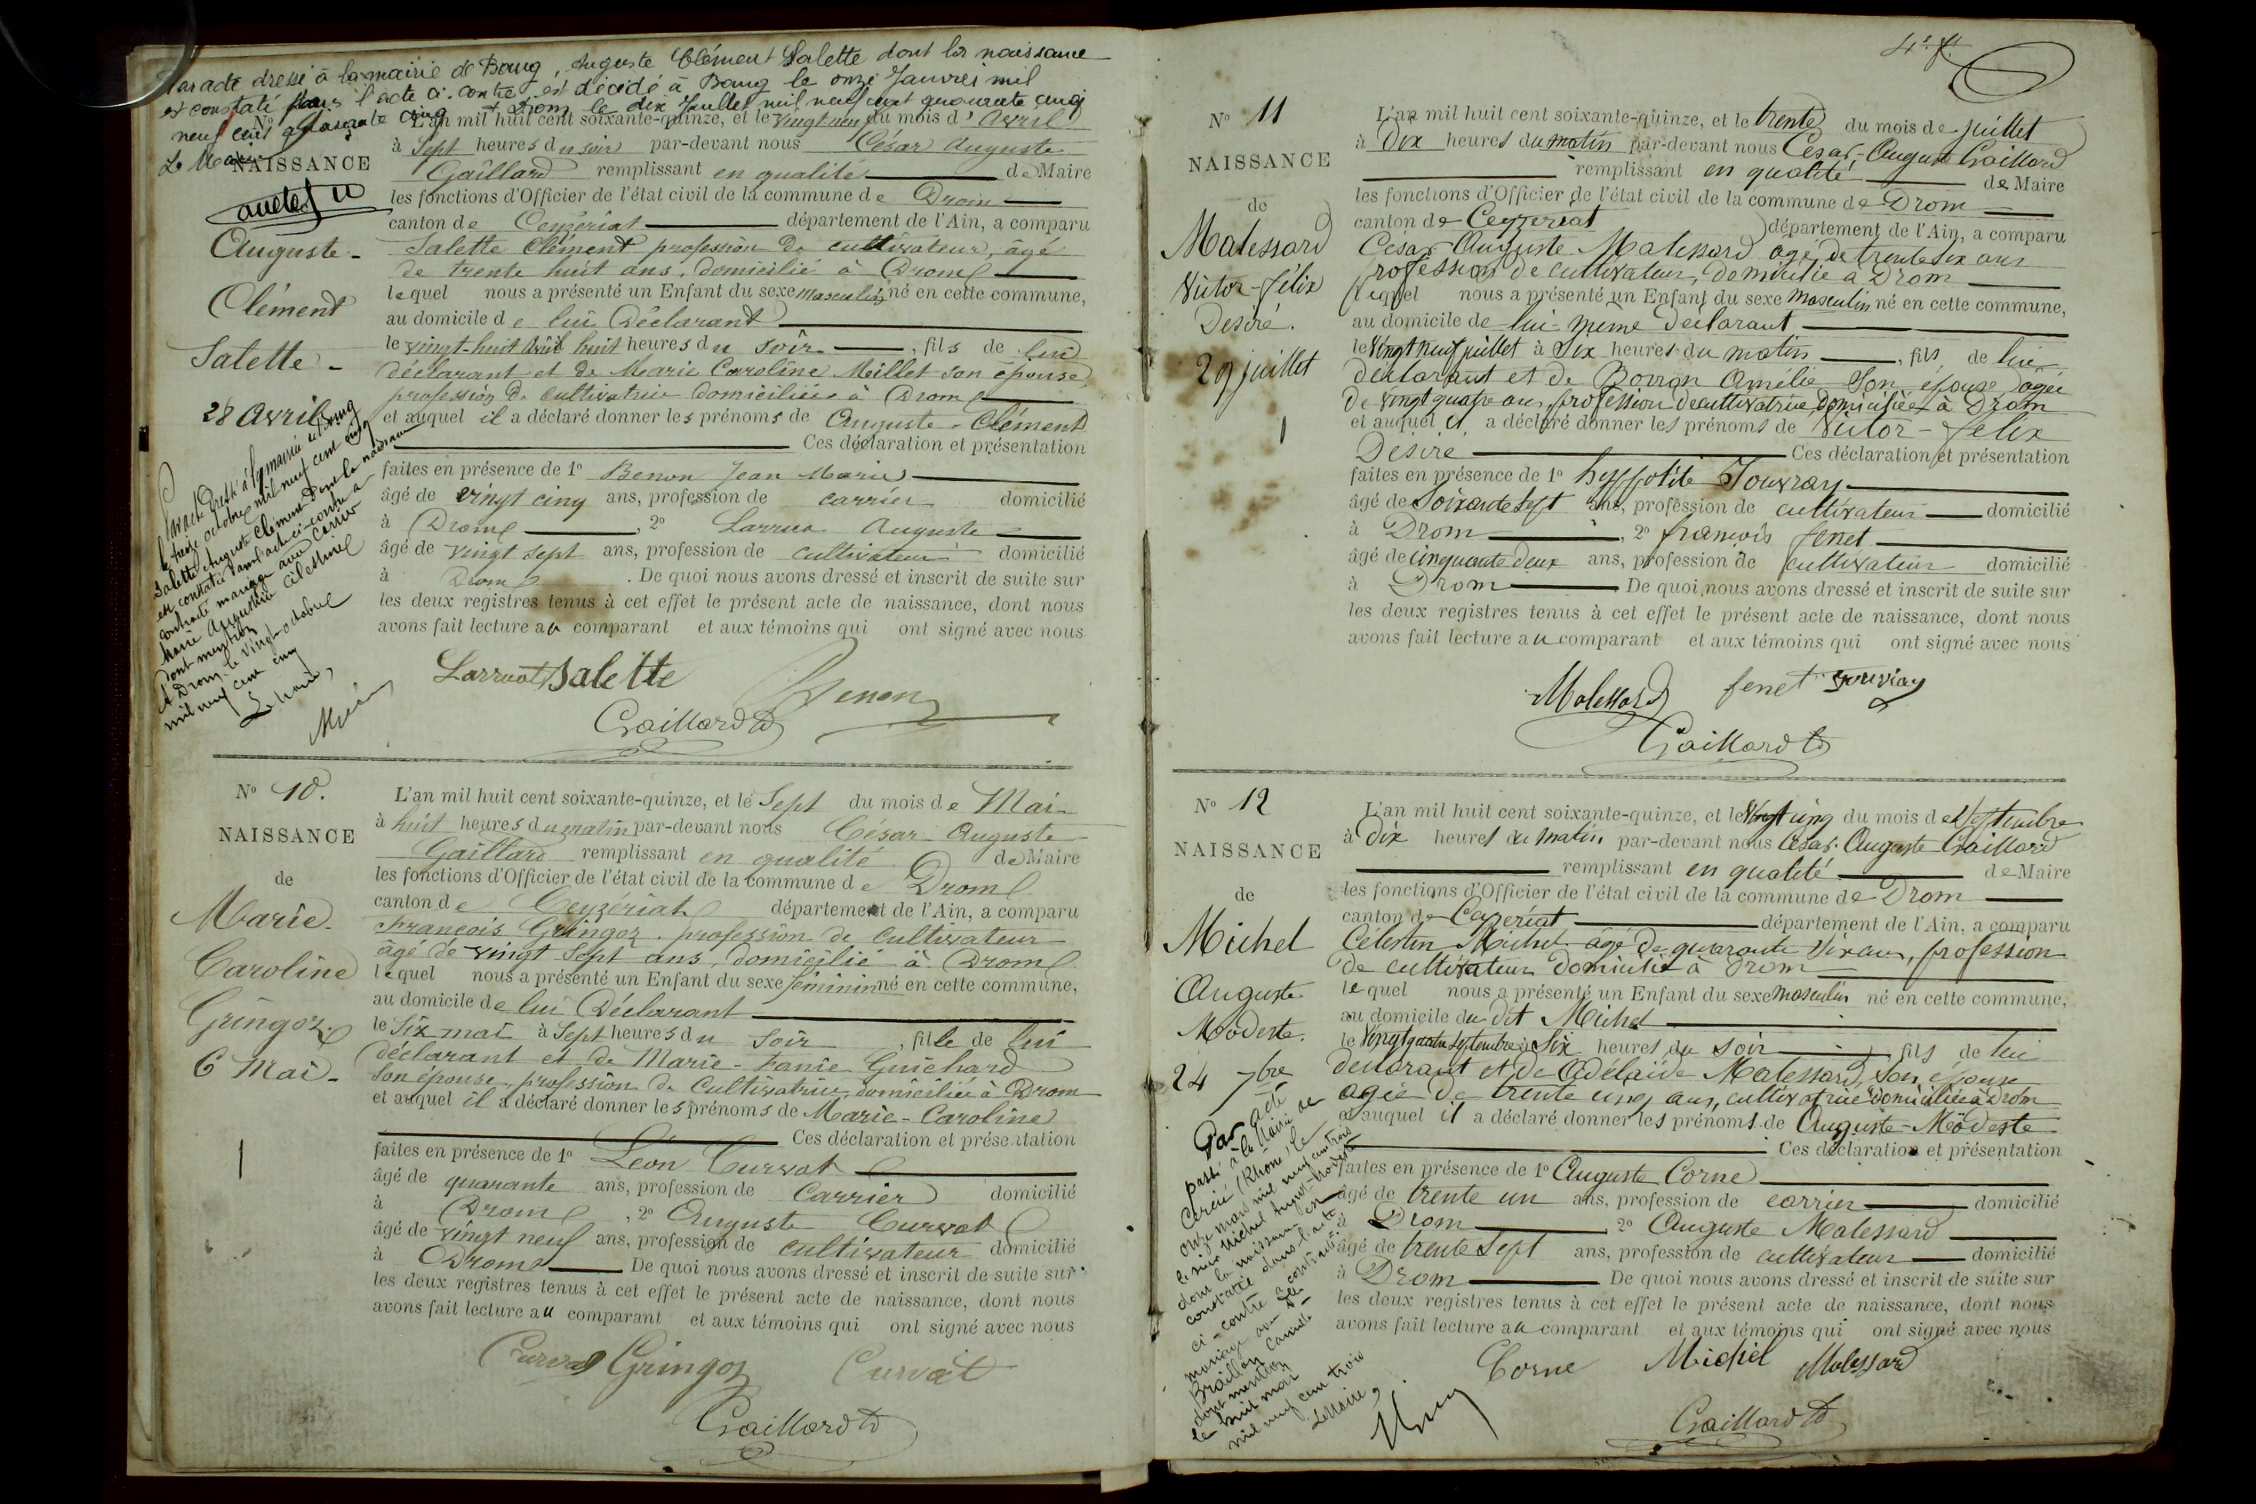 Par acte dressé à la mairie de Bourg, Auguste Clément Salette dont la naissance
est constatée dans l'acte ci-contre est décédé à Bourg le onze Janvier mil
neuf cent quarante cinq Drom, le dix Juillet mil neuf cent quarante cinq
Le Maire
Nº
NAISSANCE
Auguste-
Clément
Salette-
28 Avril
Par acte dressé à la mairie de Bourg
le treize octobre mil neuf cent cinq
Salette Auguste Clément dont la naissance
est constatée dans l'acte ci-contre a
contracté mariage avec Carrier
Marie Augustine Célestine
dont mention
à Drom, le vingt octobre
mil neuf cent cinq
Le Maire,
L'an mil huit cent soixante-quinze, et le vingt neuf du mois d'Avril
à Sept heures du soir par-devant nous César Auguste
Gaillard remplissant en qualité de Maire
les fonctions d'Officier de l'état civil de la commune de Drom
canton de Ceyzériat département de l'Ain, a comparu
Salette Clément profession de cultivateur, âgé
de trente huit ans, domicilié à Drom
lequel nous a présenté un Enfant du sexe masculin né en cette commune,
au domicile de lui Déclarant
le vingt-huit Avril huit heures du soir, fils de lui
déclarant et de Marie Caroline Millet son épouse,
profession de cultivatrice domiciliée à Drom
et auquel il a déclaré donner les prénoms de Auguste-Clément
Ces déclaration et présentation
faites en présence de 1º Benon Jean Marie
âgé de vingt cinq ans, profession de carrier domicilié
à Drom, 2º Larruat Auguste
âgé de vingt sept ans, profession de cultivateur domicilié
à Drom. De quoi nous avons dressé et inscrit de suite sur
les deux registres tenus à cet effet le présent acte de naissance, dont nous
avons fait lecture au comparant et aux témoins qui ont signé avec nous
Larruat Salette Benon
Gaillard
Nº 10.
NAISSANCE
de
Marie-
Caroline
Gringoz.
6 Mai-
L'an mil huit cent soixante-quinze, et le Sept du mois de Mai
à huit heures du matin par-devant nous César-Auguste
Gaillard remplissant en qualité de Maire
les fonctions d'Officier de l'état civil de la commune de Drom
canton de Ceyzériat département de l'Ain, a comparu
François Gringoz, profession de Cultivateur
âgé de vingt Sept ans, domicilié à Drom
lequel nous a présenté un Enfant du sexe féminin né en cette commune,
au domicile de lui Déclarant
le Six mai à Sept heures du Soir, fille de lui
déclarant et de Marie-Fanie Guichard
Son épouse, profession de Cultivatrice, domiciliée à Drom
et auquel il a déclaré donner les prénoms de Marie-Caroline
Ces déclaration et présentation
faites en présence de 1º Léon Curvat
âgé de quarante ans, profession de Carrier domicilié
à Drom, 2º Auguste Curvat
âgé de vingt neuf ans, profession de cultivateur domicilié
à Drom De quoi nous avons dressé et inscrit de suite sur
les deux registres tenus à cet effet le présent acte de naissance, dont nous
avons fait lecture au comparant et aux témoins qui ont signé avec nous
Curvat Gringoz Curvat
Gaillard
Nº 11
NAISSANCE
de
Malessard
Victor-félix
Desiré.
29 juillet
L'an mil huit cent soixante-quinze, et le trente du mois de juillet
à Dix heures du matin par-devant nous César-Auguste Gaillard
remplissant en qualité de Maire
les fonctions d'Officier de l'état civil de la commune de Drom
canton de Ceyzeriat département de l'Ain, a comparu
César-Auguste Malessard agé de trente six ans
profession de cultivateur, domicilié à Drom
lequel nous a présenté un Enfant du sexe masculin né en cette commune,
au domicile de lui-même Déclarant
le vingt neuf juillet à Six heures du matin, fils de lui
déclarant et de Boiron Amélie Son épouse agée
de vingt quatre ans, profession de cultivatrice domiciliée à Drom
et auquel il a déclaré donner les prénoms de Victor-félix
Desiré Ces déclaration et présentation
faites en présence de 1º hyppolite Jouvray
âgé de Soixante Sept ans, profession de cultivateur domicilié
à Drom, 2º francois fenet
âgé de cinquante deux ans, profession de cultivateur domicilié
à Drom De quoi nous avons dressé et inscrit de suite sur
les deux registres tenus à cet effet le présent acte de naissance, dont nous
avons fait lecture au comparant et aux témoins qui ont signé avec nous
Malessard fenet Jouvray
Gaillard
Nº 12
NAISSANCE
de
Michel
Auguste
Modeste.
24 7bre
Par acte
passé à la Mairie de
Cercié (Rhône) le
onze mars mil neuf cent trois
le sieur Michel Auguste-Modeste
dont la naissance est
constatée dans l'acte
ci-contre a contracté
mariage avec Dlle
Braillon Camille
dont mention
le huit mai
mil neuf cent trois
Le Maire,
L'an mil huit cent soixante-quinze, et le Vingt cinq du mois de Septembre
à Dix heures du matin par-devant nous César-Auguste Gaillard
remplissant en qualité de Maire
les fonctions d'Officier de l'état civil de la commune de Drom
canton de Ceyzeriat département de l'Ain, a comparu
Célestin Michel agé de quarante Six ans, profession
de cultivateur domicilié à Drom
lequel nous a présenté un Enfant du sexe masculin né en cette commune,
au domicile du dit Michel
le Vingt quatre Septembre à Six heures du soir, fils de lui
déclarant et de Adélaïde Malessard, Son épouse
agée de trente cinq ans, cultivatrice domiciliée à Drom
et auquel il a déclaré donner les prénoms de Auguste-Modeste
Ces déclaration et présentation
faites en présence de 1º Auguste Corne
âgé de trente un ans, profession de carrier domicilié
à Drom 2º Auguste Malessard
âgé de trente Sept ans, profession de cultivateur domicilié
à Drom De quoi nous avons dressé et inscrit de suite sur
les deux registres tenus à cet effet le présent acte de naissance, dont nous
avons fait lecture au comparant et aux témoins qui ont signé avec nous
Corne Michel Malessard
Gaillard